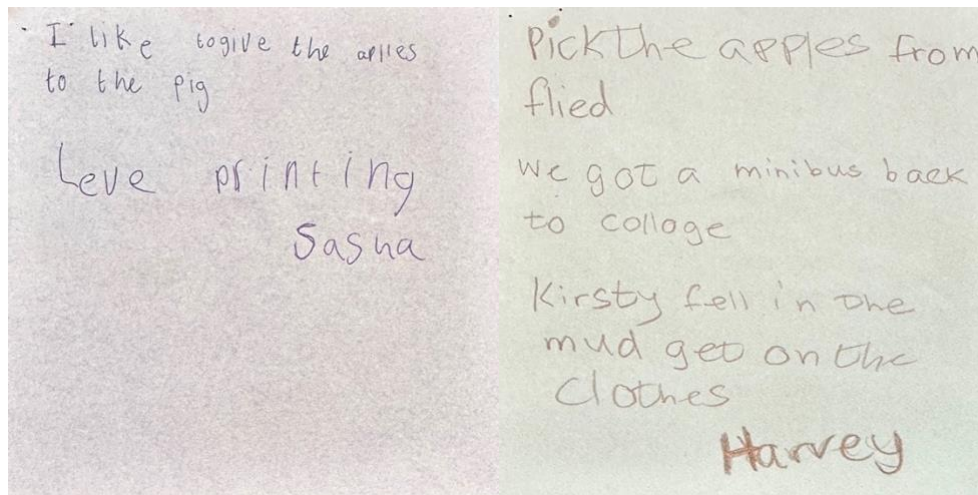 I like togive the applies
to the pig
Leve printing
Sasha
Pick the apples from
flied
We got a minibus back
to collage
Kirsty fell in the
mud get on the
Clothes
Harvey